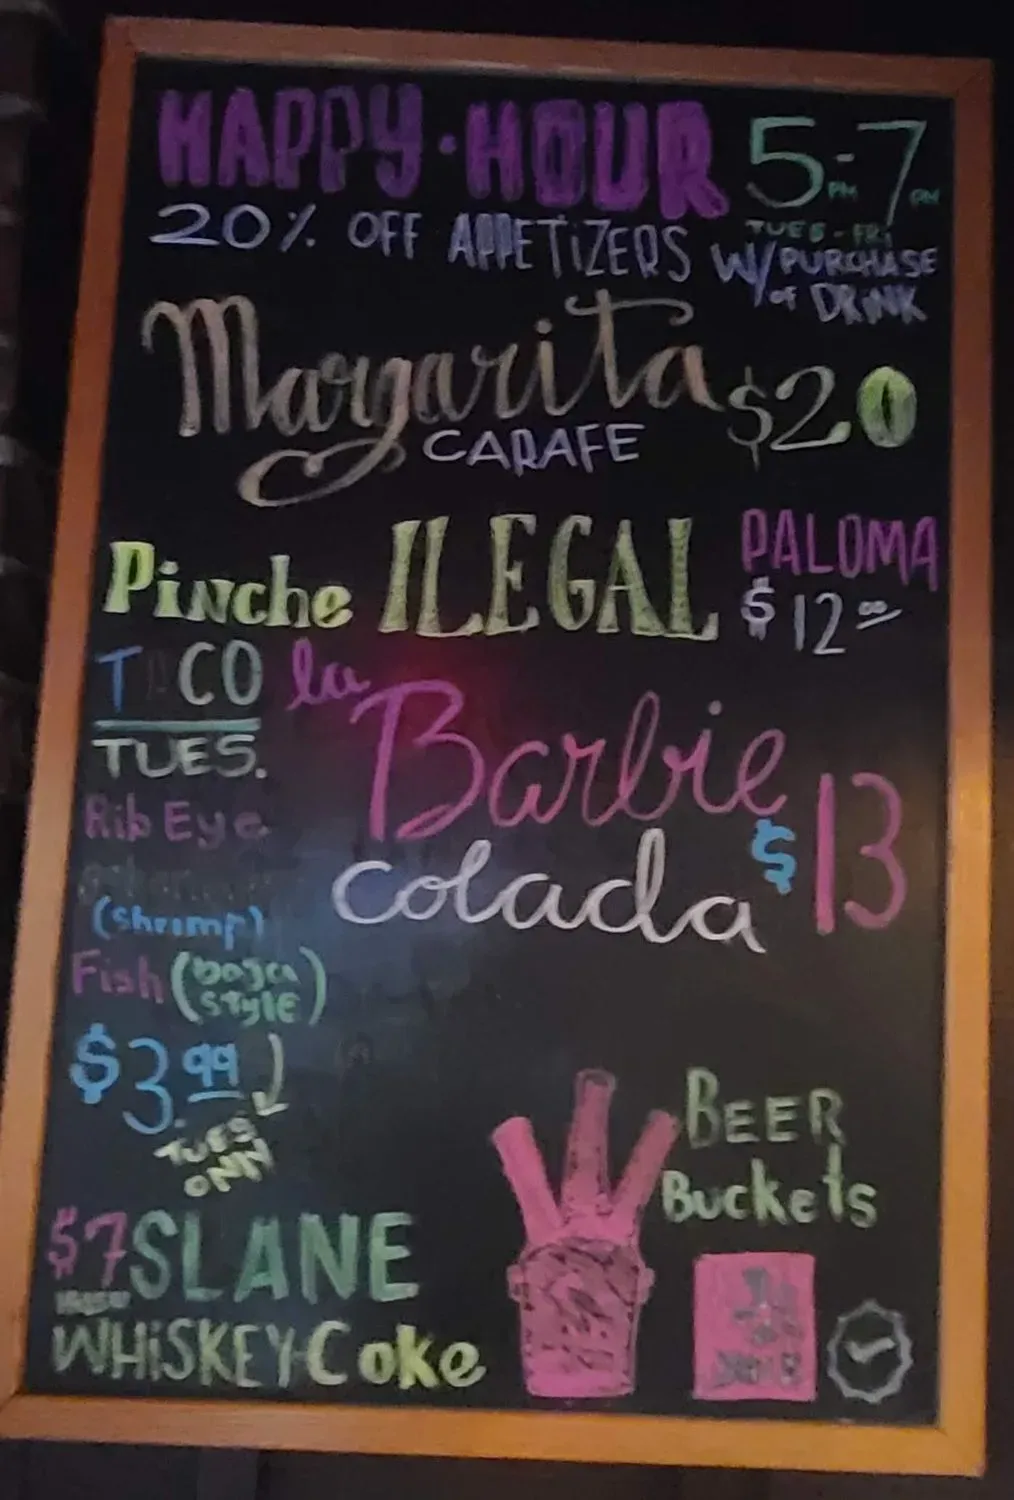 HAPPY·HOUR 5PM-7PM
TUES-FRI
20% OFF APPETiZERS W/PURCHASE
of DRiNK
Margarita $20
CARAFE
Pinche ILEGAL PALOMA
$12ºº
TACO
TUES.
Rib Eye
(shrimp)
Fish (baja
style)
$3.99
TUES
ONLY
la Barbie
colada $13
BEER
Buckets
$7 SLANE
WHiSKEY-Coke